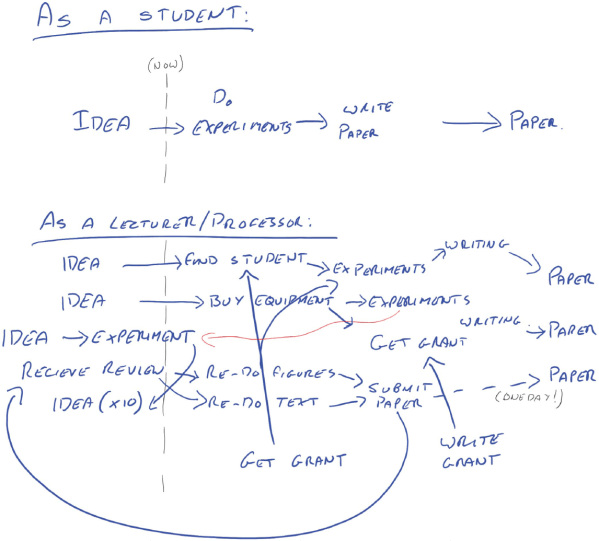 AS A STUDENT:
(NOW)
IDEA → DO EXPERIMENTS → WRITE PAPER → PAPER.
AS A LECTURER/PROFESSOR:
IDEA → FIND STUDENT → EXPERIMENTS → WRITING → PAPER
IDEA → BUY EQUIPMENT → EXPERIMENTS
GET GRANT
IDEA → EXPERIMENT
WRITING → PAPER
RECIEVE REVIEW → RE-DO FIGURES → SUBMIT PAPER → PAPER
(ONE DAY!)
IDEA (x10)
RE-DO TEXT
GET GRANT
WRITE GRANT